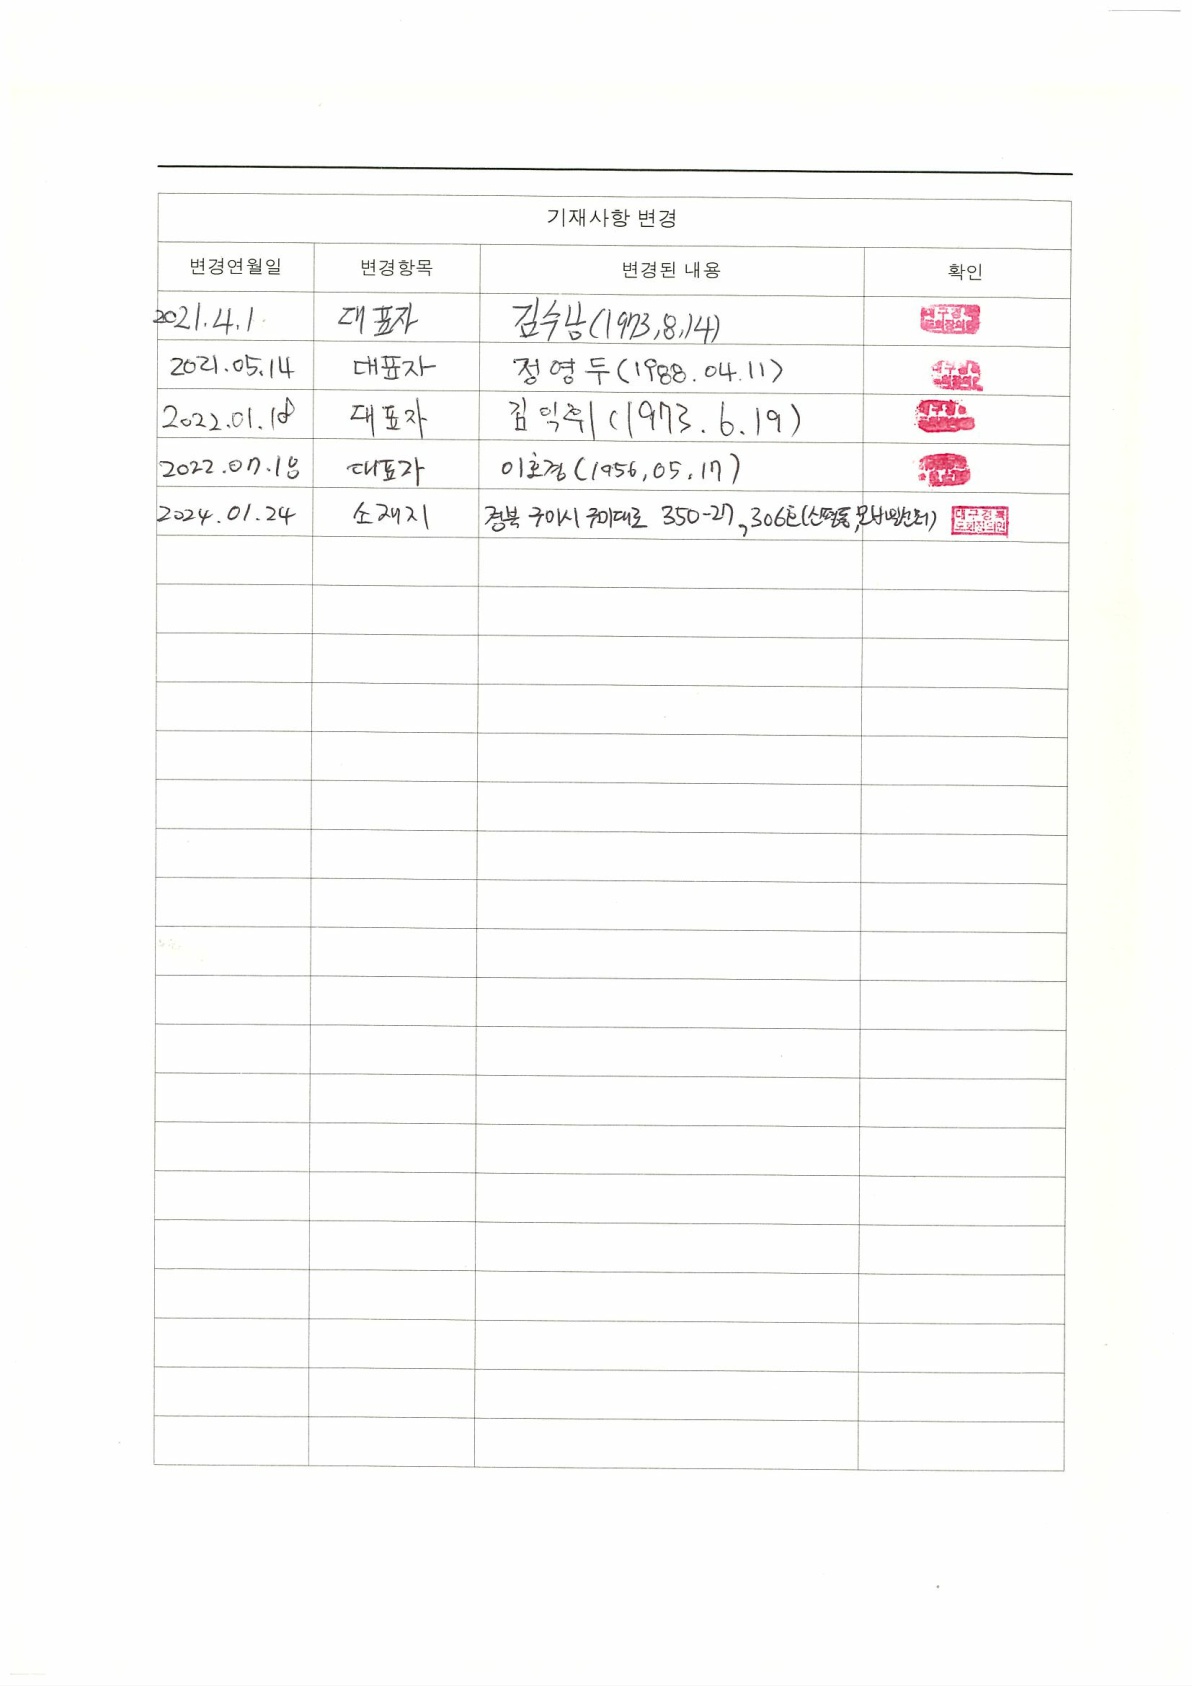 기재사항 변경
변경연월일 변경항목 변경된 내용 확인
2021.4.1 대표자 김수남(1973,8,14)
2021.05.14 대표자 정영두(1988.04.11)
2022.01.18 대표자 김익취(1973.6.19)
2022.07.18 대표자 이호경(1956.05.17)
2024.01.24 소재지 경북 구미시 구미대로 350-27, 306호(신평동,
대구경북
도회장의인